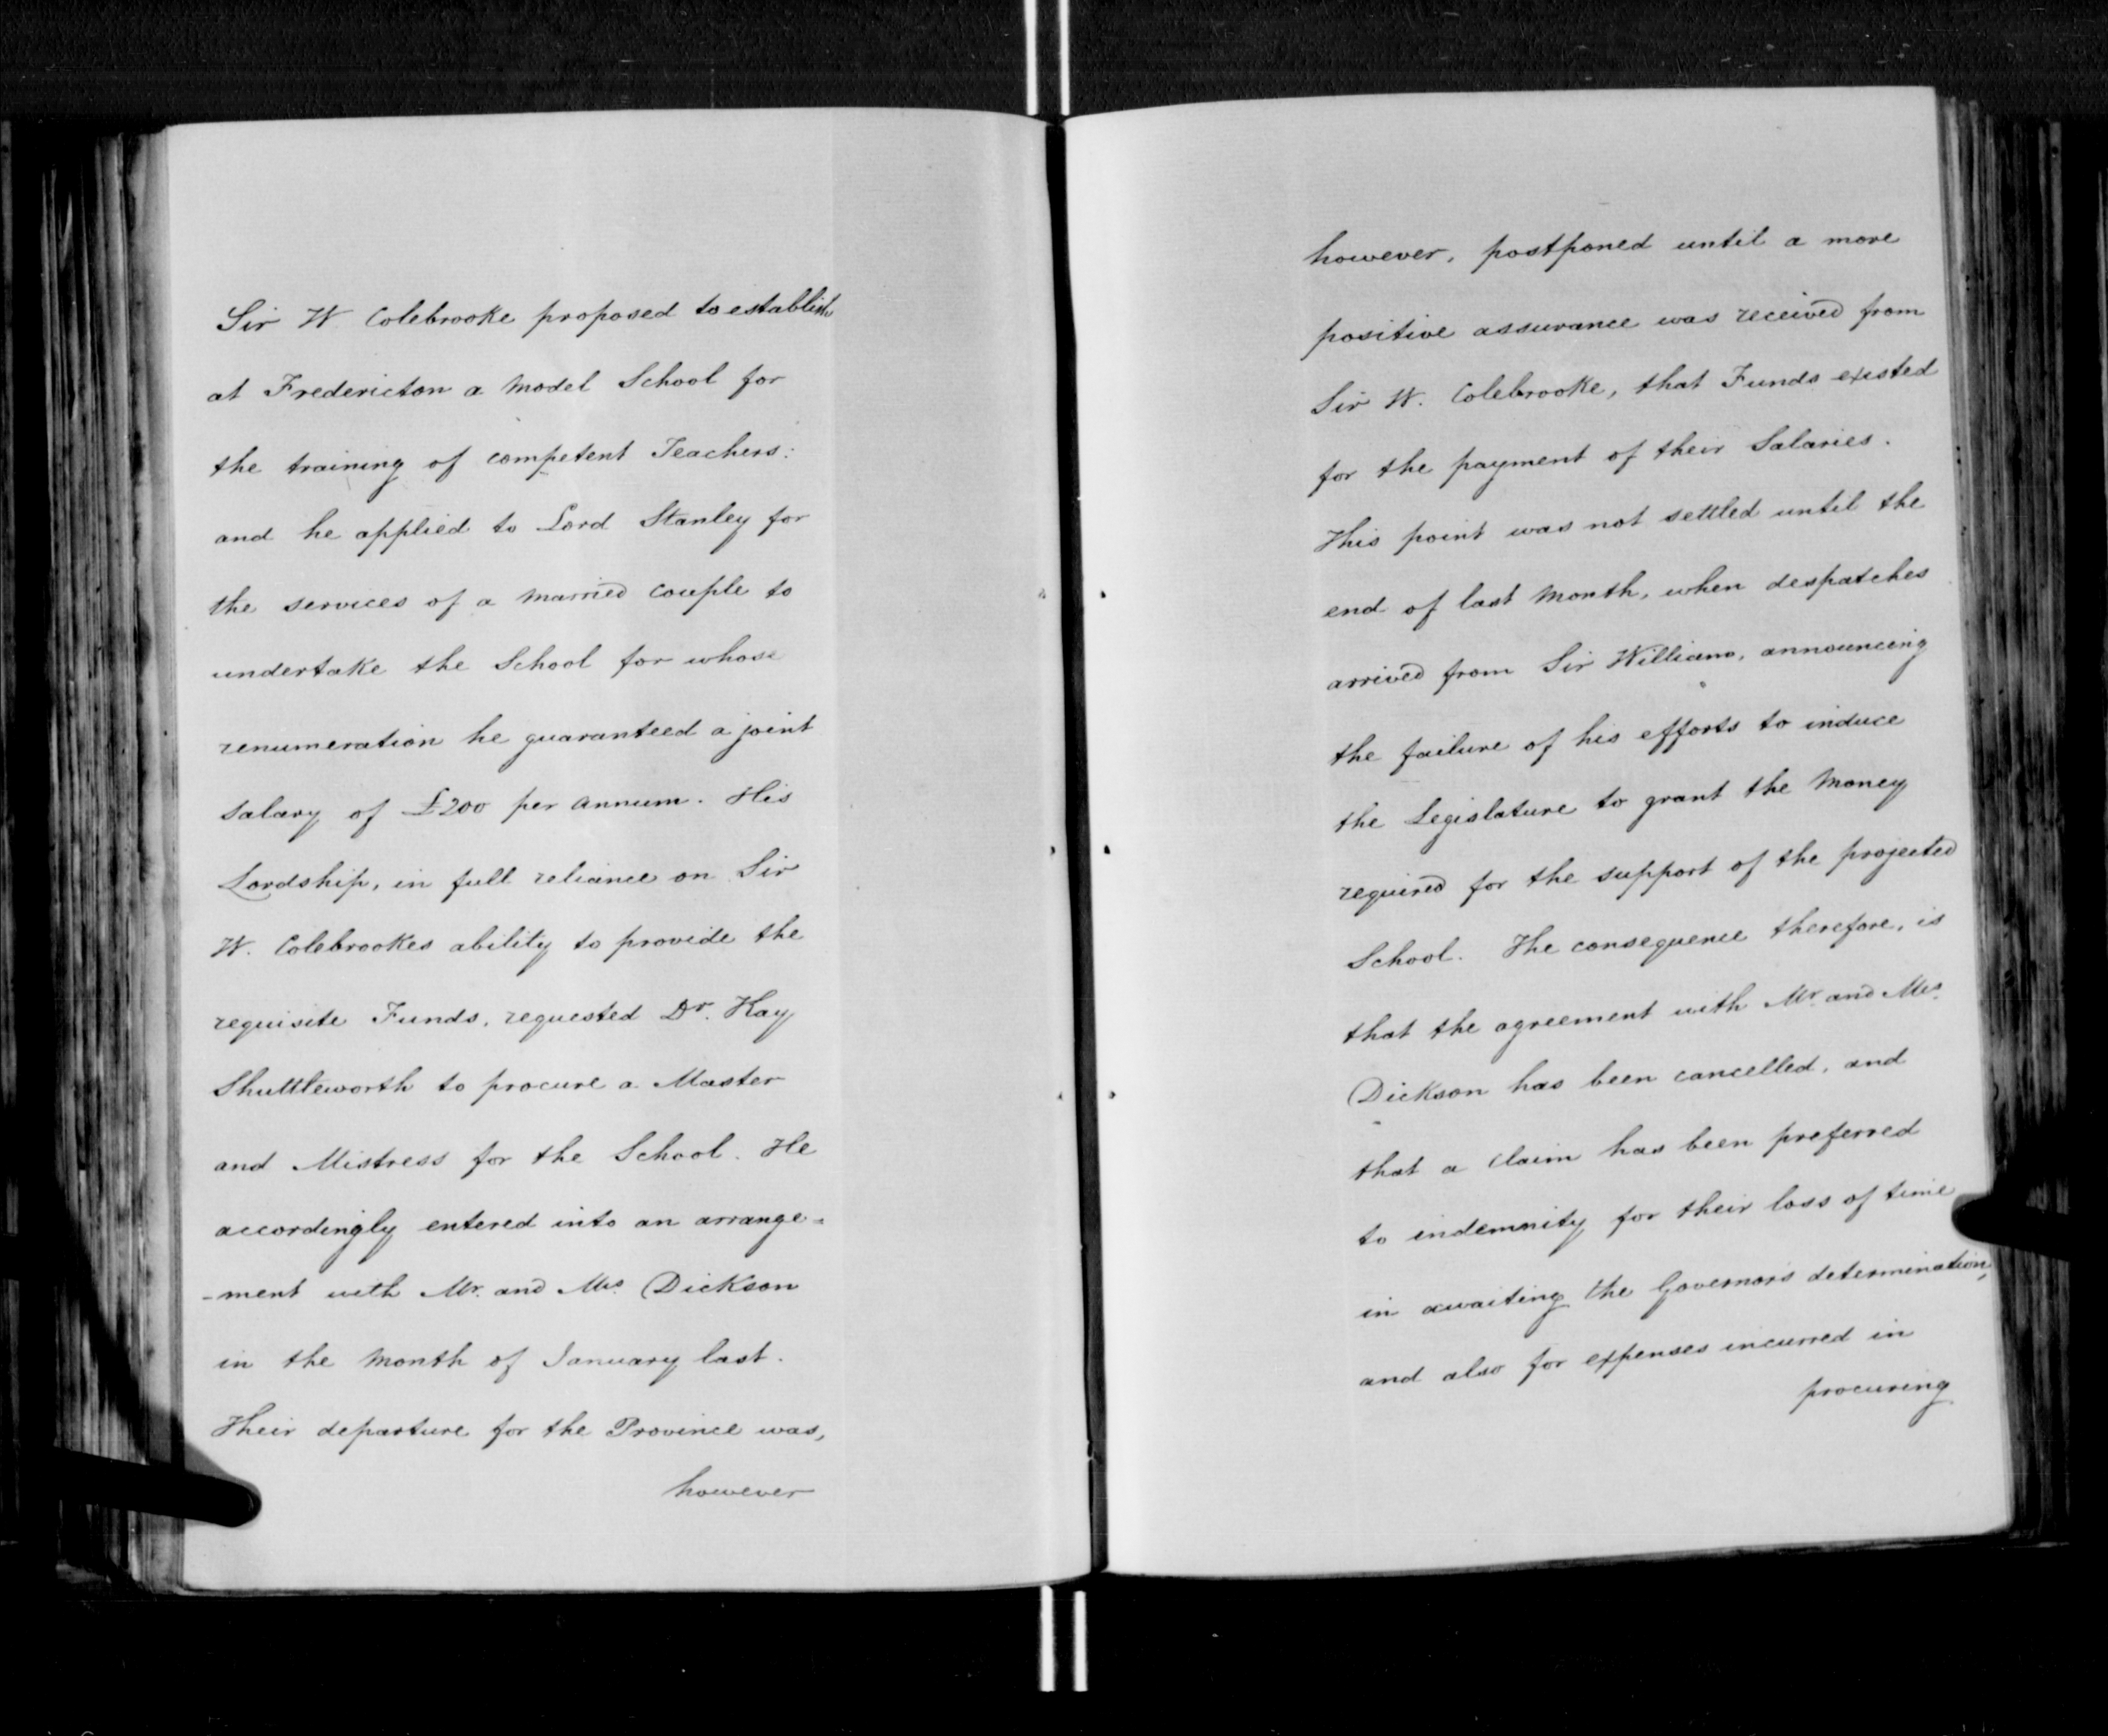 Sir W. Colebrooke proposed to establish
at Fredericton a Model School for
the training of competent Teachers:
and he applied to Lord Stanley for
the services of a Married Couple to
undertake the School for whose
renumeration he guaranteed a joint
Salary of £200 per Annum. His
Lordship, in full reliance on Sir
W. Colebrookes ability to provide the
requisite Funds, requested Dr. Kay
Shuttleworth to procure a Master
and Mistress for the School. He
accordingly entered into an arrange=
-ment with Mr. and Mrs. Dickson
in the Month of January last.
Their departure for the Province was,
however
however, postponed until a more
positive assurance was received from
Sir W. Colebrooke, that Funds existed
for the payment of their Salaries.
This point was not settled until the
end of last Month, when despatches
arrived from Sir William, announcing
the failure of his efforts to induce
the Legislature to grant the Money
required for the support of the projected
School. The consequence therefore, is
that the agreement with Mr. and Mrs.
Dickson has been cancelled, and
that a Claim has been preferred
to indemnity for their loss of time
in awaiting the Governors determination,
and also for expenses incurred in
procuring